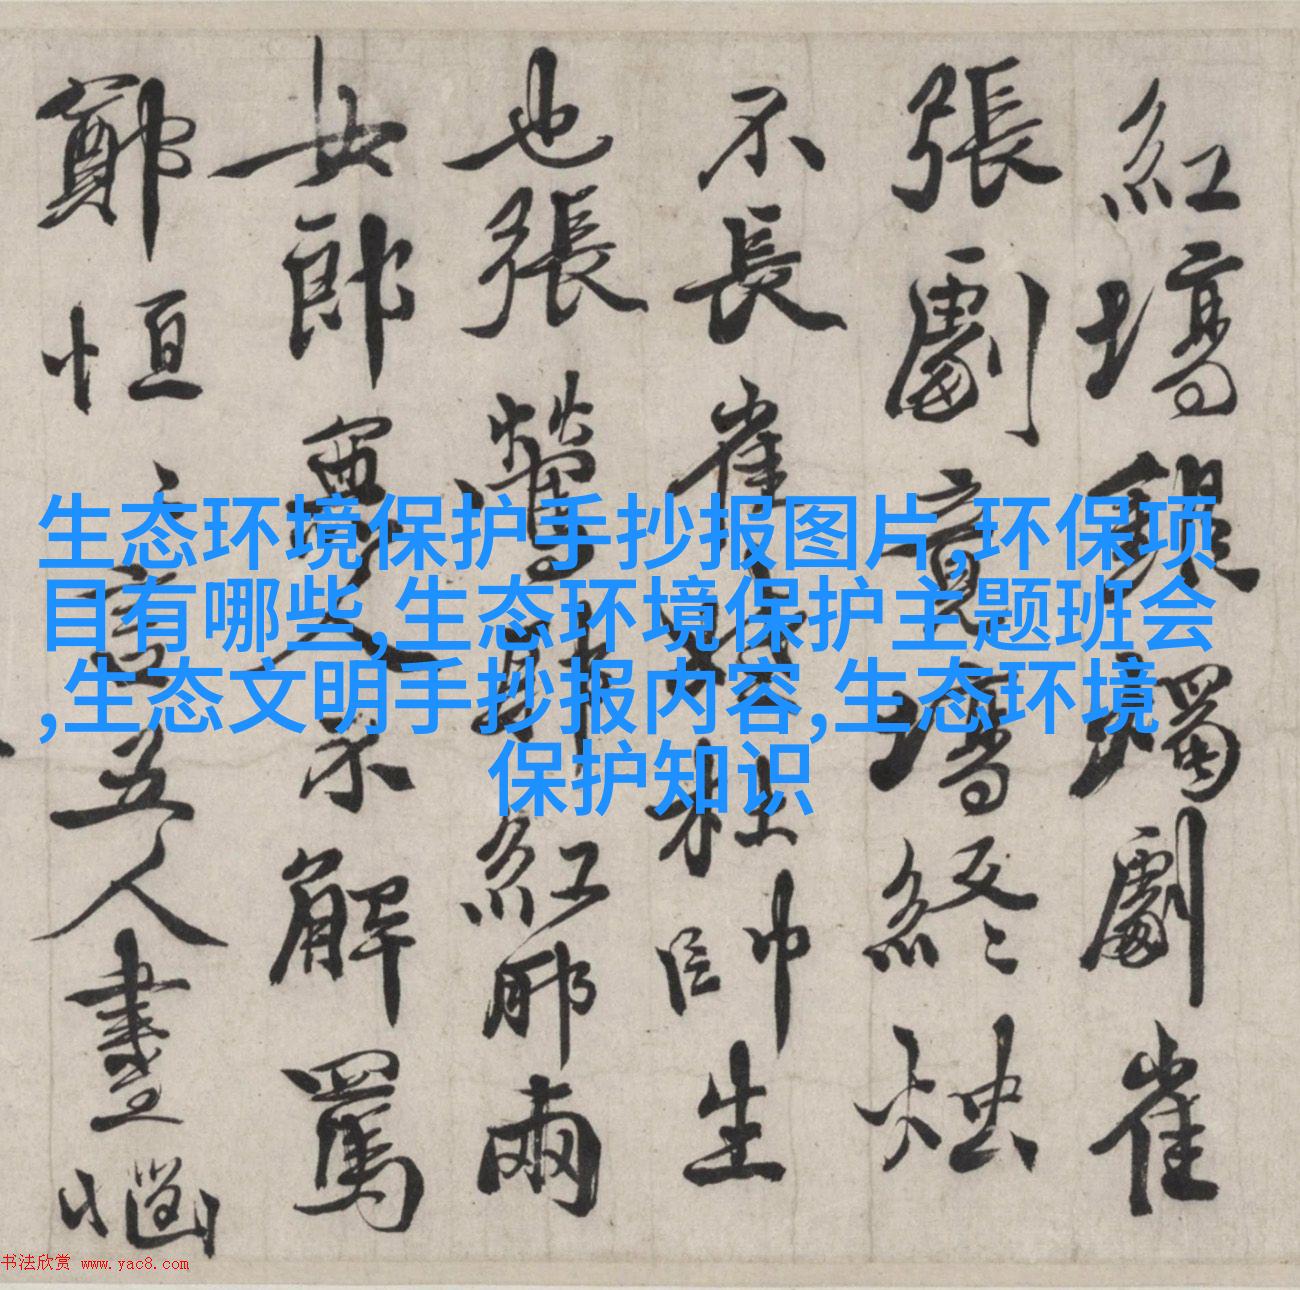 生态环境保护手抄报图片,环保项
目有哪些,生态环境保护主题班会
,生态文明手抄报内容,生态环境
保护知识
紅塲燭劇崔
張劇竟塲終
不長崔杜帥生
也張鶯紅耶兩
女郎人不解罵
鄭恒五人
书法欣赏 www.yac8.com